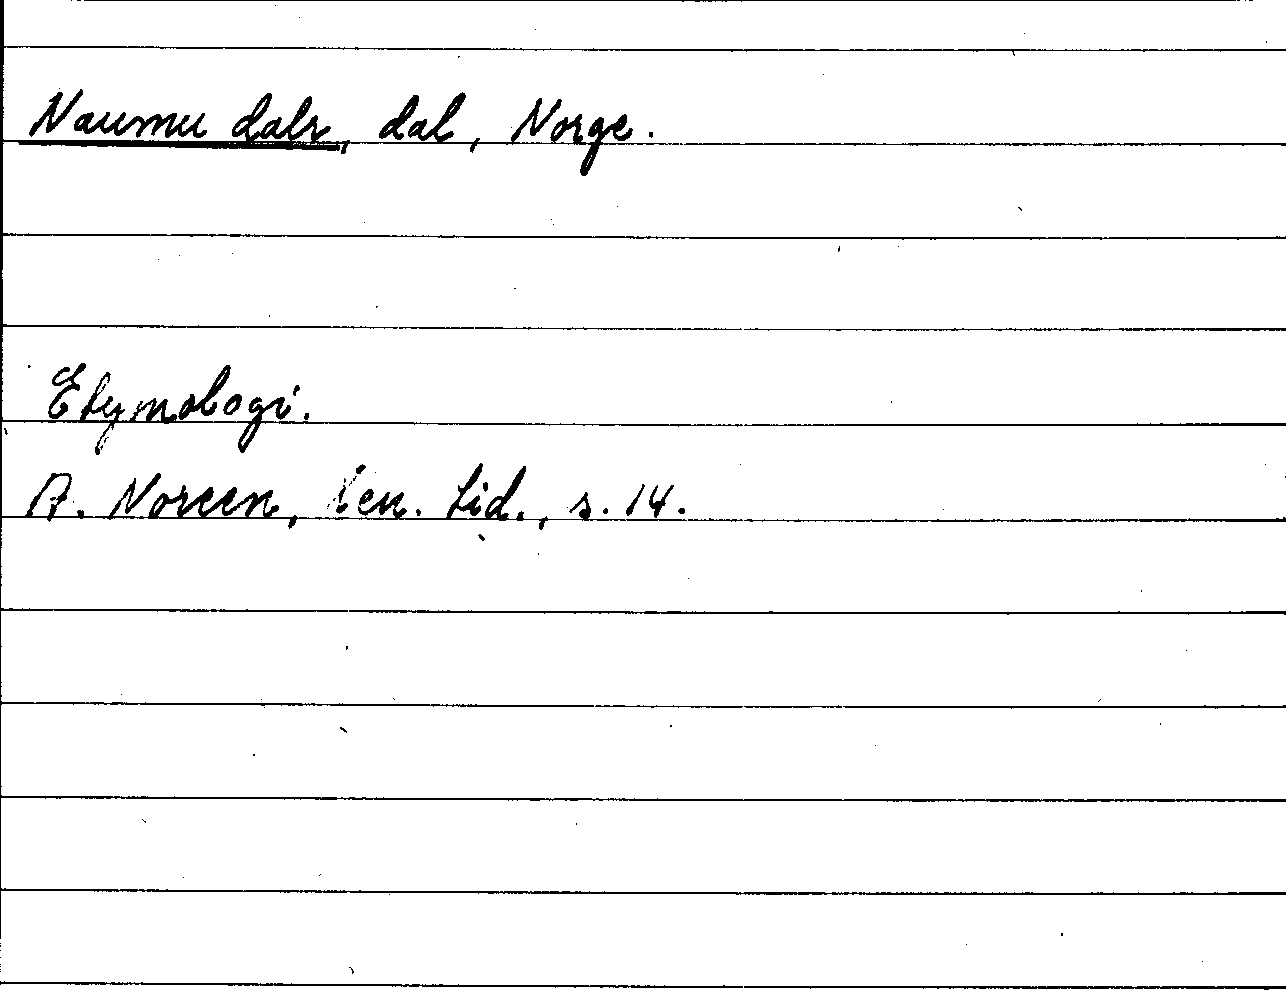 Naumu dalr, dal, Norge.
Etymologi.
A. Noreen, tid., s. 14.